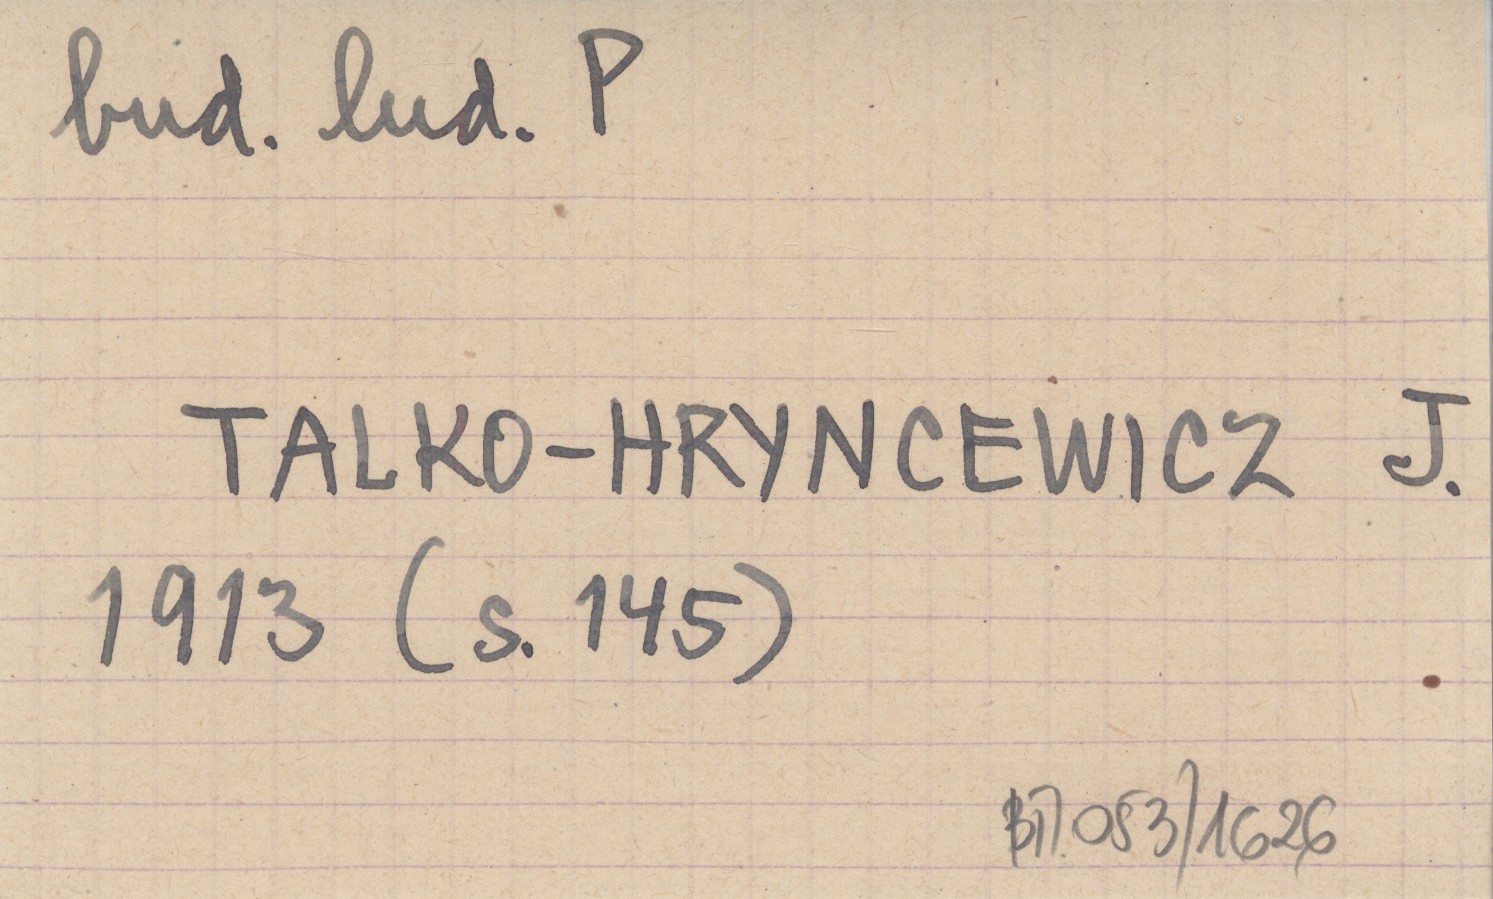 bud. lud. P
TALKO-HRYNCEWICZ J.
1913 (s. 145)
053/1626